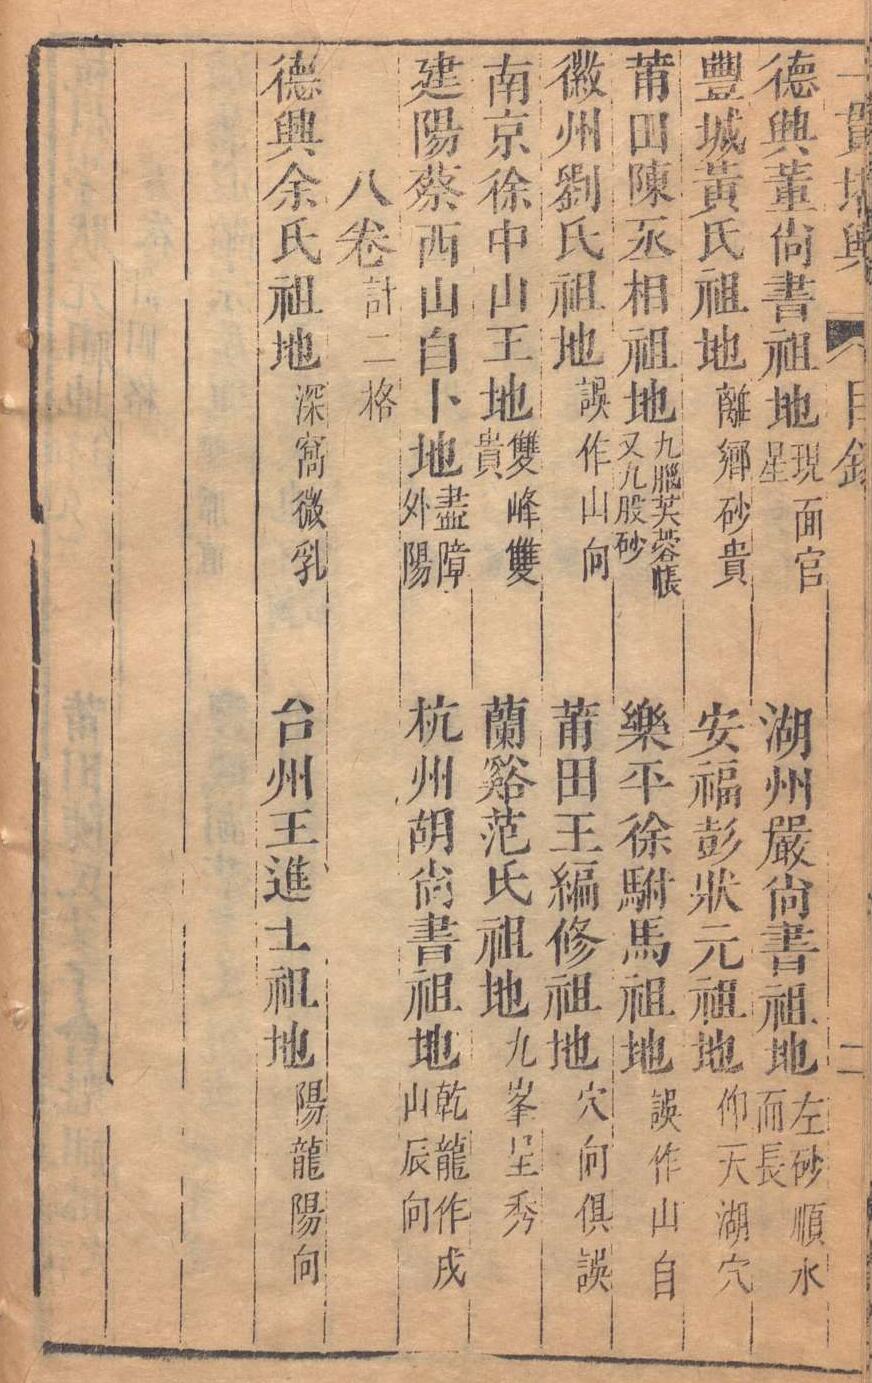 一貫堪輿 目錄 二
德興董尙書祖地 現面官星 湖州嚴尙書祖地 左砂順水而長
豐城黃氏祖地 離鄉砂貴 安福彭狀元祖地 仰天湖穴
莆田陳丞相祖地 九腦芙蓉帳又九股砂 樂平徐駙馬祖地 誤作山自
徽州劉氏祖地 誤作山向 莆田王編修祖地 穴向俱誤
南京徐中山王地 雙峰雙貴 蘭谿范氏祖地 九峯呈秀
建陽蔡西山自卜地 盡障外陽 杭州胡尙書祖地 乾龍作戌山辰向
八卷 計二格
德興余氏祖地 深窩微乳 台州王進士祖地 陽龍陽向